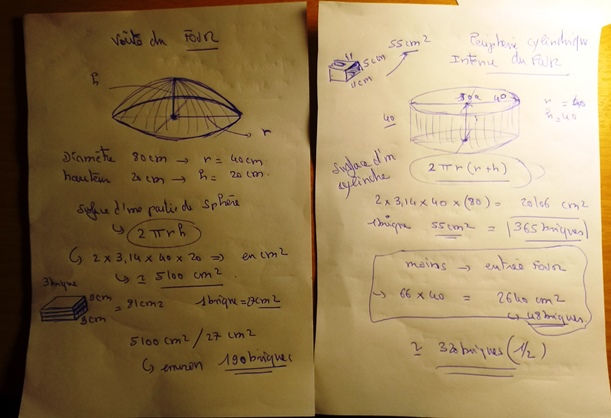 Voûte du FOUR
h
r
Diamètre 80cm → r = 40cm
hauteur 20cm → h = 20cm
Surface d'une partie de sphère
↳ 2πrh
↳ 2 x 3,14 x 40 x 20 ⇒ en cm²
↳ ≃ 5100 cm²
3 brique
9cm
3cm
= 81cm2
1brique = 27cm²
5100 cm² / 27 cm²
↳ environ 190 briques
Peripherie cylindrique
Interne du FOUR
55cm²
5cm
11cm
40
r = 40
h = 40
Surface d'un
cylindre
2πr(r+h)
2 x 3,14 x 40 x (80) = 20106 cm²
1brique 55cm² = 365 briques
moins → entrée FOUR
→ 66 x 40 = 2640 cm²
↳ 48 briques
≃ 320 briques (1/2)